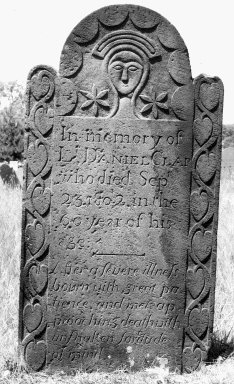 In memory of
Lt. DANIEL CLAP
who died Sep
23, 1802, in the
60 year of his
age.
After a severe illness
born with great pa-
tience, and met ap-
proaching death with
unshaken fortitude
of mind